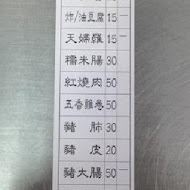 炸/油豆腐 15
天婦羅 15
糯米腸 30
紅燒肉 50
五香雞卷 50
豬肺 30
豬皮 20
豬大腸 50